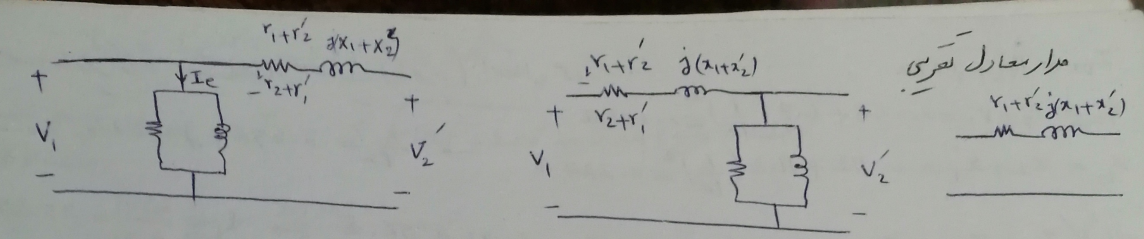 r₁+r₂′ j(x₁+x₂′)
یا r₂+r₁′
Ie
+
V₁
-
+
V₂′
-
یا r₁+r₂′ j(x₁+x₂′)
r₂+r₁′
+
V₁
-
+
V₂′
-
مدار معادل تقریبی
r₁+r₂′ j(x₁+x₂′)